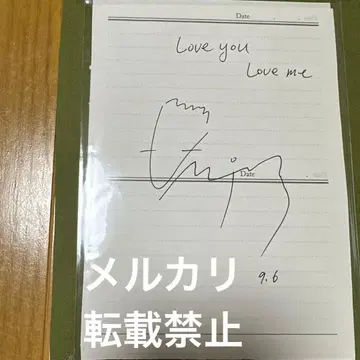 Date
Love you
Love me
Date
9.6
メルカリ
転載禁止